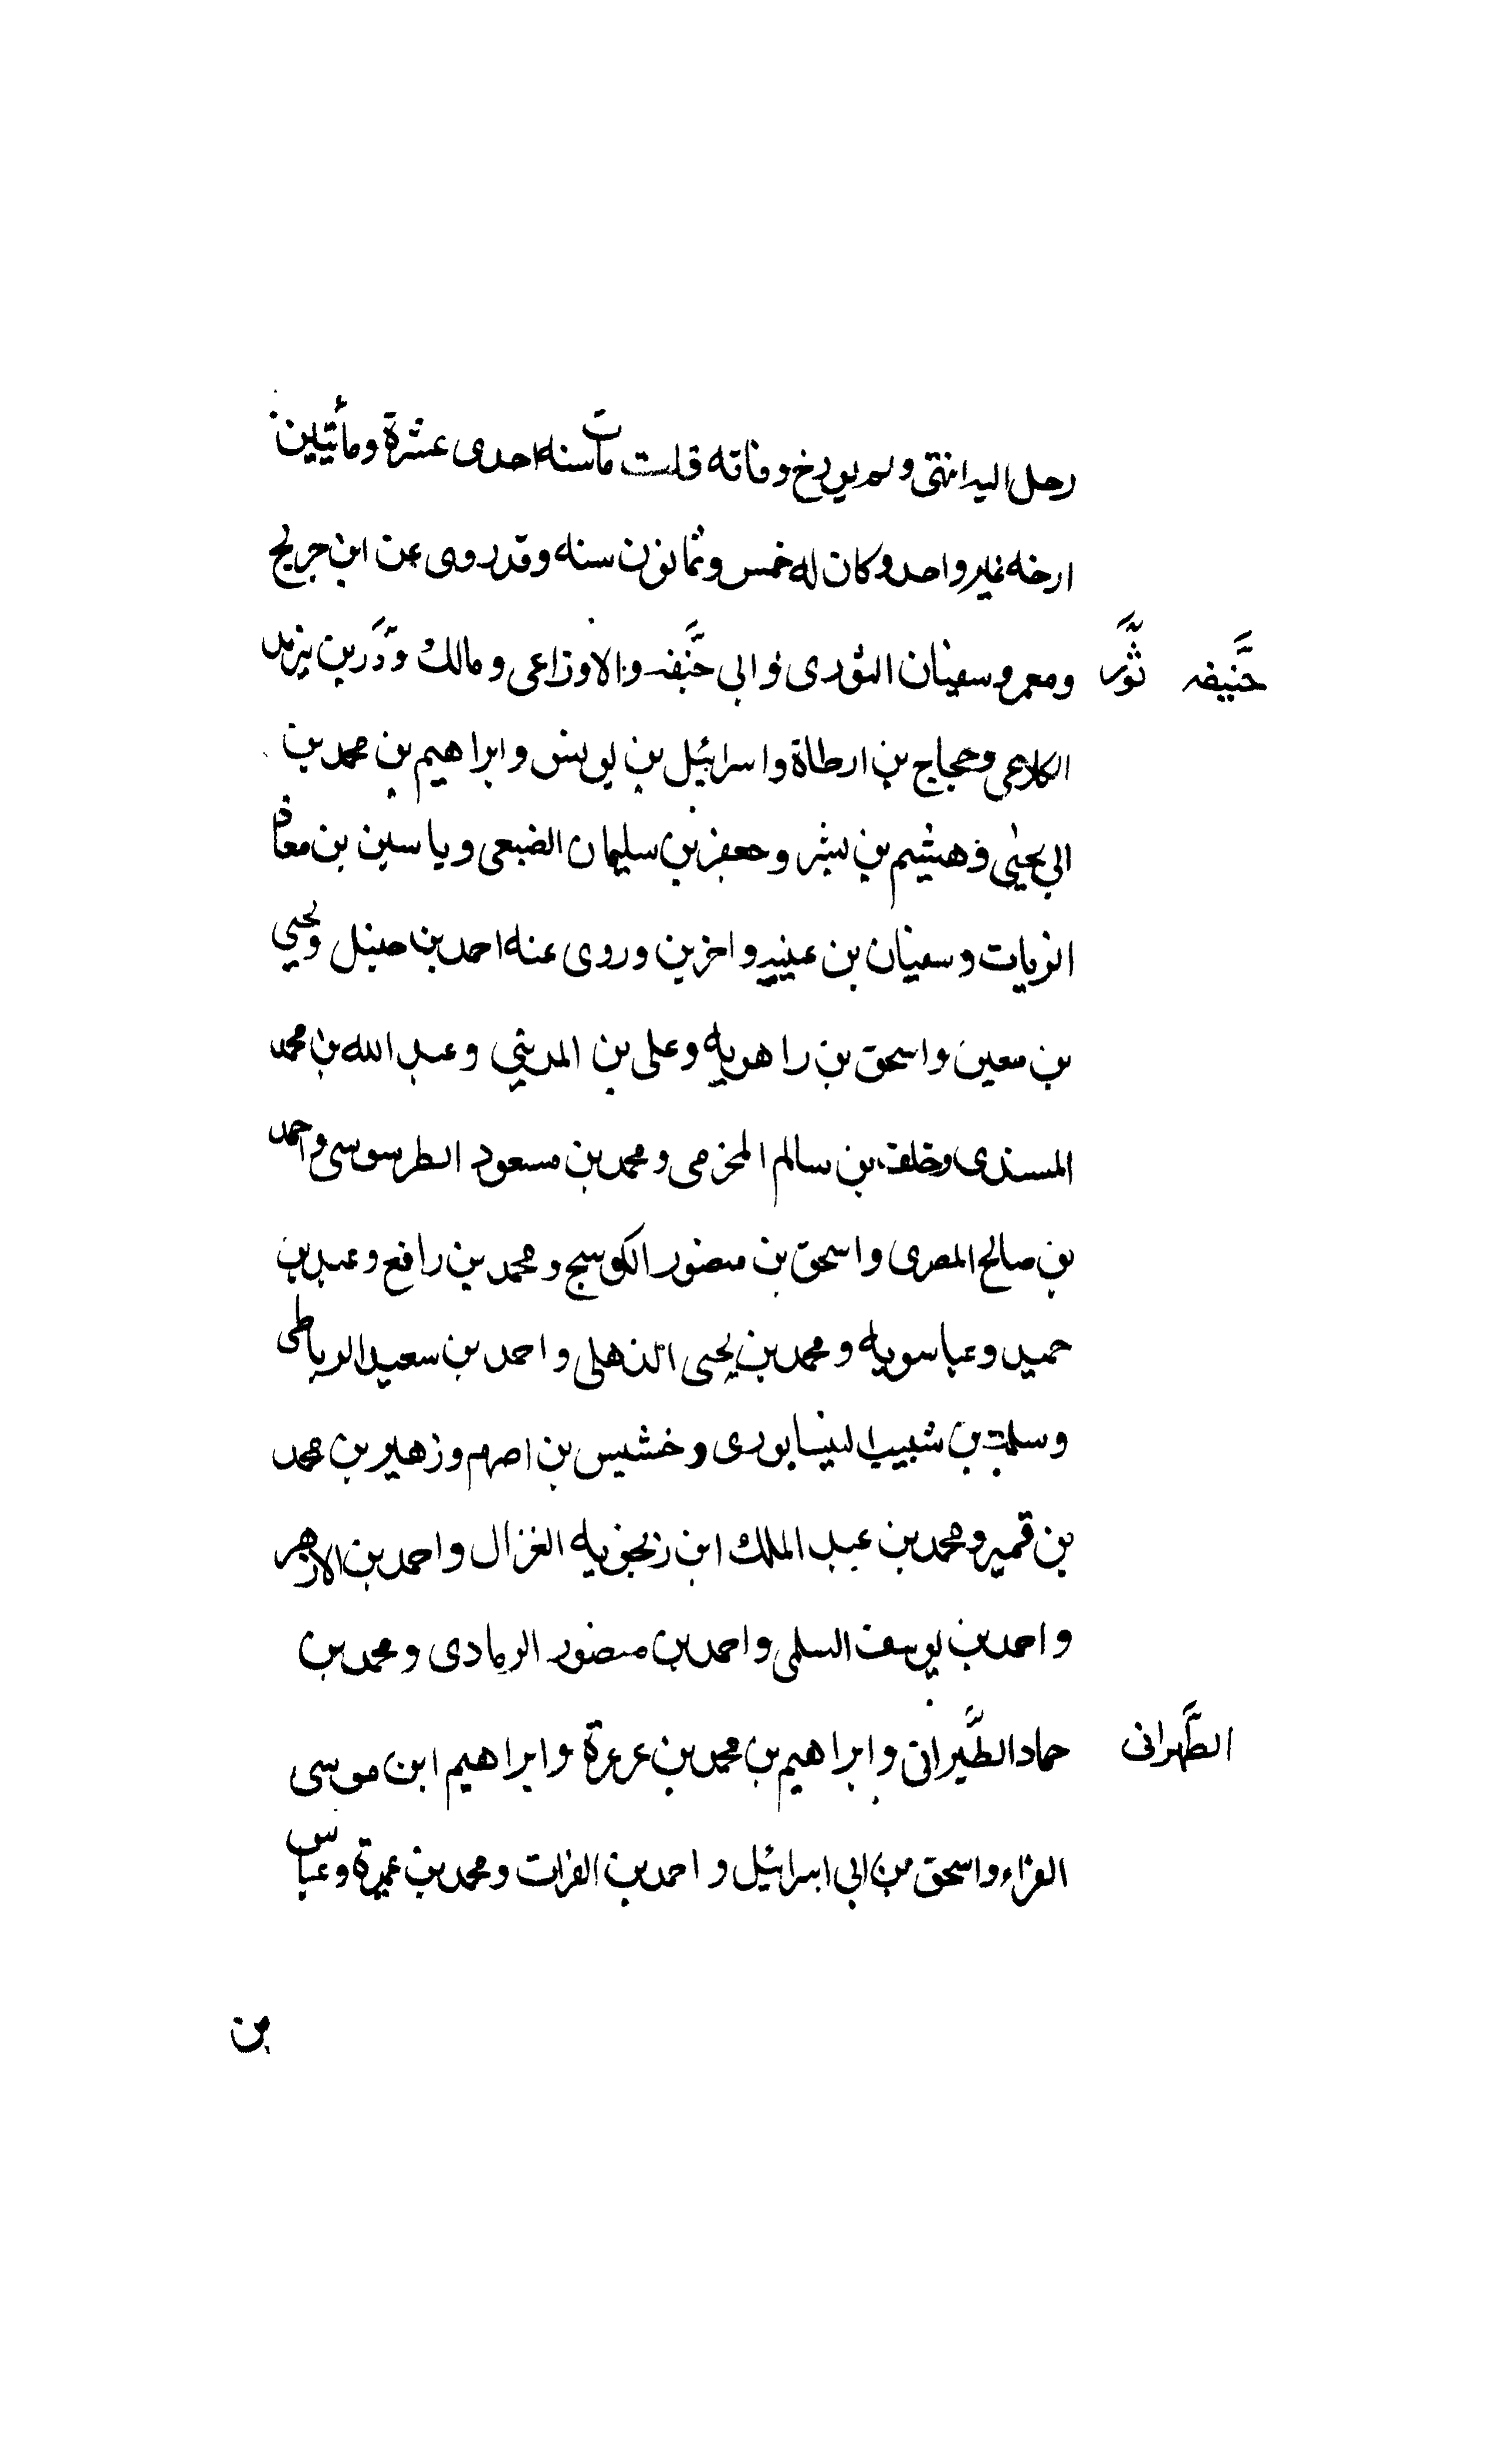 رحل اليه انتهى ولم يورخ وفاته قلت مات سنه احدى عشرة ومأتيين
ارخه غير واحد وكان له خمس وثمانون سنه وقد روى عن ابن جريج
ومعمر وسفيان الثورى و ابي حنيفه والاوزاعى ومالك وثور بن يزيد
حنيفه ثور
الكلاعى وحجاج بن ارطاة واسرائيل بن يونس وابراهيم بن محمد بن
ابي يحيي وهشيم بن بشير وجعفر بن سليمان الضبعى وياسين بن معاذ
الزيات وسفيان بن عيينه واخرين وروى عنه احمد بن حنبل ويحيي
بن معين واسحق بن راهويه وعلى بن المديني وعبد الله بن محمد
المسندى وخلف بن سالم المخزمى ومحمد بن مسعود الطرسوسى واحمد
بن صالح المصرى واسحق بن منصور الكوسج ومحمد بن رافع وعبد بن
حميد وعباسويه ومحمد بن يحيى الذهلى واحمد بن سعيد الرباطى
وسلمة بن شبيب النيسابورى وخشيس بن اصرم وزهير بن محمد
بن قمير ومحمد بن عبد الملك ابن زنجويه الغزال واحمد بن الازهر
واحمد بن يوسف السلمى واحمد بن منصور الرمادى ومحمد بن
حماد الطهرانى وابراهيم بن محمد بن عرعرة وابراهيم ابن موسى
الطهرانى
الفراء واسحق بن ابى اسرائيل و احمد بن الفرات ومحمد بن عميرة وعباس
بن